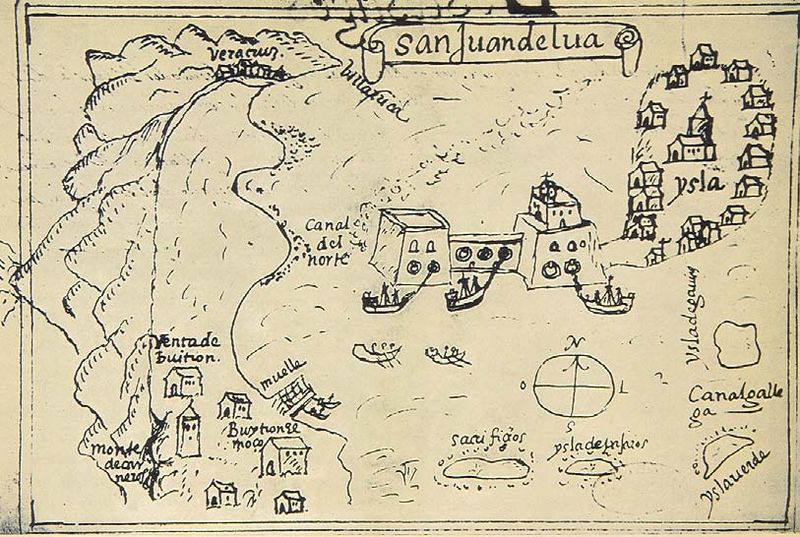 sanJuandelua
Veracruz
Villa rica
ysla
Canal
del
norte
Ventade
Buitron.
muelle
N
O
L
S
Canalgalle
ga
Buytronel
moço
monte
decar
neros
sacrifiçios
yslaverde